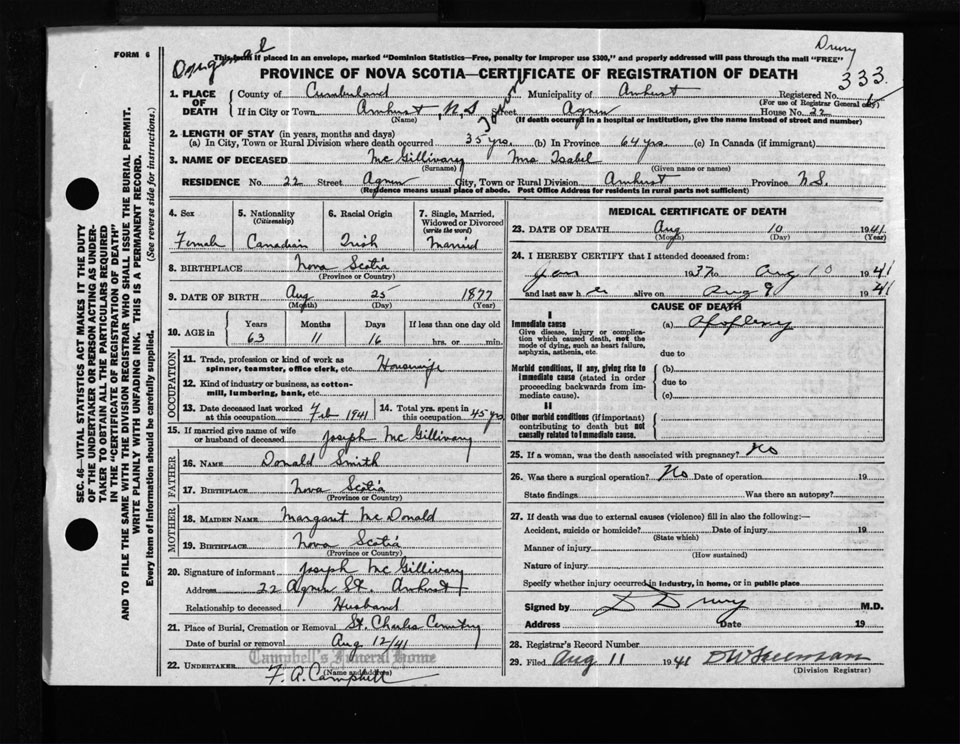 FORM 6
Original
This form if placed in an envelope, marked "Dominion Statistics—Free, penalty for improper use $300," and properly addressed will pass through the mail "FREE"
Drury
PROVINCE OF NOVA SCOTIA—CERTIFICATE OF REGISTRATION OF DEATH
333
1. PLACE OF DEATH County of Cumberland Municipality of Amherst Registered No.
(For use of Registrar General only)
If in City or Town Amherst, N.S. Street Agnew House No. 22
(Name) (If death occurred in a hospital or institution, give the name instead of street and number)
2. LENGTH OF STAY (in years, months and days)
(a) In City, Town or Rural Division where death occurred 35 yrs. (b) In Province 64 yrs. (c) In Canada (if immigrant)
3. NAME OF DECEASED McGillivary Mrs Isabel
(Surname) (Given name or names)
RESIDENCE No. 22 Street Agnew City, Town or Rural Division Amherst Province N.S.
(Residence means usual place of abode. Post Office Address for residents in rural parts not sufficient)
4. Sex 5. Nationality (Citizenship) 6. Racial Origin 7. Single, Married, Widowed or Divorced (write the word)
Female Canadian Irish Married
8. BIRTHPLACE Nova Scotia
(Province or Country)
9. DATE OF BIRTH Aug 25 1877
(Month) (Day) (Year)
10. AGE in Years Months Days If less than one day old
63 11 16 hrs. or min.
OCCUPATION
11. Trade, profession or kind of work as spinner, teamster, office clerk, etc. Housewife
12. Kind of industry or business, as cotton-mill, lumbering, bank, etc.
13. Date deceased last worked at this occupation Feb 1941 14. Total yrs. spent in this occupation 45 yrs
15. If married give name of wife or husband of deceased Joseph McGillivary
FATHER
16. NAME Donald Smith
17. BIRTHPLACE Nova Scotia
(Province or Country)
MOTHER
18. MAIDEN NAME Margaret McDonald
19. BIRTHPLACE Nova Scotia
(Province or Country)
20. Signature of informant Joseph McGillivary
Address 22 Agnew St. Amherst
Relationship to deceased Husband
21. Place of Burial, Cremation or Removal St. Charles Cemetry
Date of burial or removal Aug 12/41
Campbell's Funeral Home
22. UNDERTAKER F. A. Campbell
(Name and address)
MEDICAL CERTIFICATE OF DEATH
23. DATE OF DEATH Aug 10 1941
(Month) (Day) (Year)
24. I HEREBY CERTIFY that I attended deceased from:
Jan 1937 to Aug 10 1941
and last saw her alive on Aug 9 1941
CAUSE OF DEATH
I
Immediate cause (a) Apoplexy
Give disease, injury or complication which caused death, not the mode of dying, such as heart failure, asphyxia, asthenia, etc.
due to
Morbid conditions, if any, giving rise to immediate cause (stated in order proceeding backwards from immediate cause). (b)
due to
(c)
II
Other morbid conditions (if important) contributing to death but not causally related to immediate cause.
25. If a woman, was the death associated with pregnancy? No
26. Was there a surgical operation? No Date of operation 19
State findings Was there an autopsy?
27. If death was due to external causes (violence) fill in also the following:—
Accident, suicide or homicide? Date of injury 19
(State which)
Manner of injury
(How sustained)
Nature of injury
Specify whether injury occurred in industry, in home, or in public place
Signed by D Drury M.D.
Address Date 19
28. Registrar's Record Number
29. Filed Aug 11 1941
(Division Registrar)
SEC. 46—VITAL STATISTICS ACT MAKES IT THE DUTY
OF THE UNDERTAKER OR PERSON ACTING AS UNDER-
TAKER TO OBTAIN ALL THE PARTICULARS REQUIRED
IN THE "CERTIFICATE OF REGISTRATION OF DEATH"
AND TO FILE THE SAME WITH THE DIVISION REGISTRAR WHO SHALL ISSUE THE BURIAL PERMIT.
WRITE PLAINLY WITH UNFADING INK. THIS IS A PERMANENT RECORD.
Every item of information should be carefully supplied. (See reverse side for instructions.)